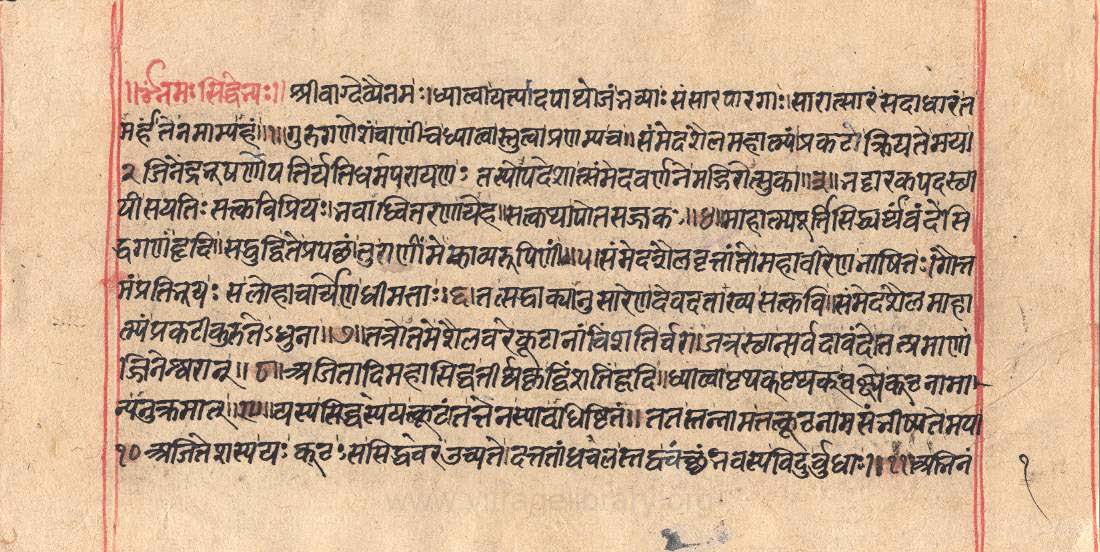 ॥ॐनमःसिद्धेभ्यः॥ श्रीवाग्देव्यैनमः॥ध्यात्वायत्पादपाथोजंभव्याः संसारपारगाः॥सारात्सारंसदाधारंत
मर्हंतंनमाम्यहं॥१॥गुरुगणेशंवाणींचध्यात्वास्तुत्वाप्रणम्यच॥संमेदशैलमहात्म्यंप्रकटी क्रियतेमया
२ जिनेंद्रभूषणोपतिर्यतिधर्मपरायणः तस्योपदेशात्संमेदवर्णनेमज्ञिरोत्सुका॥३॥भट्टारकपदस्था
यीसयतिः सत्कविप्रियः॥भवाब्धितरणायेह॥सत्कथापोतसज्जकः॥४॥माहात्म्यपूर्तिसिद्ध्यर्थंवंदेसि
द्धगणंहृदि॥सद्बुद्धितेप्रपछंतुवाणींमेकाव्यरूपिणीं॥५॥संमेदशैलवृत्तांतोमहावीरेणभाषितः॥गौत
मंप्रतिभूयः सलोहाचार्येणधीमताः॥६॥तत्सद्वाक्यानुसारेणदेवदत्ताख्यसत्कवि॥संमेदशैलमाहा
त्म्यंप्रकटीकुरुतेऽधुना॥७॥तत्रोत्तमेशैलवरेकूटानांविंशतिर्वरा॥तत्रस्थान्सर्वदावंदेतत्प्रमाणां
जिनेश्वरान्॥८॥अजितादिमहासिद्धतीर्थकृद्विंशतिंहृदि॥ध्यात्वापृथक्पृथक्वक्ष्येकूटनामा
न्यनुक्रमात्॥९॥यस्यसिद्धस्ययत्कूटंतत्तेनस्पावधिष्ठितं॥ ततस्तन्नामतत्कूटनामसंकीर्त्यतेमया
१० अजितेशस्ययः कूटः ससिद्धवरउच्यते॥दत्ततांधवलस्तद्वच्छंभवस्यविदुर्बुधाः॥११॥अभिनं
१
www.vitragelibrary.org